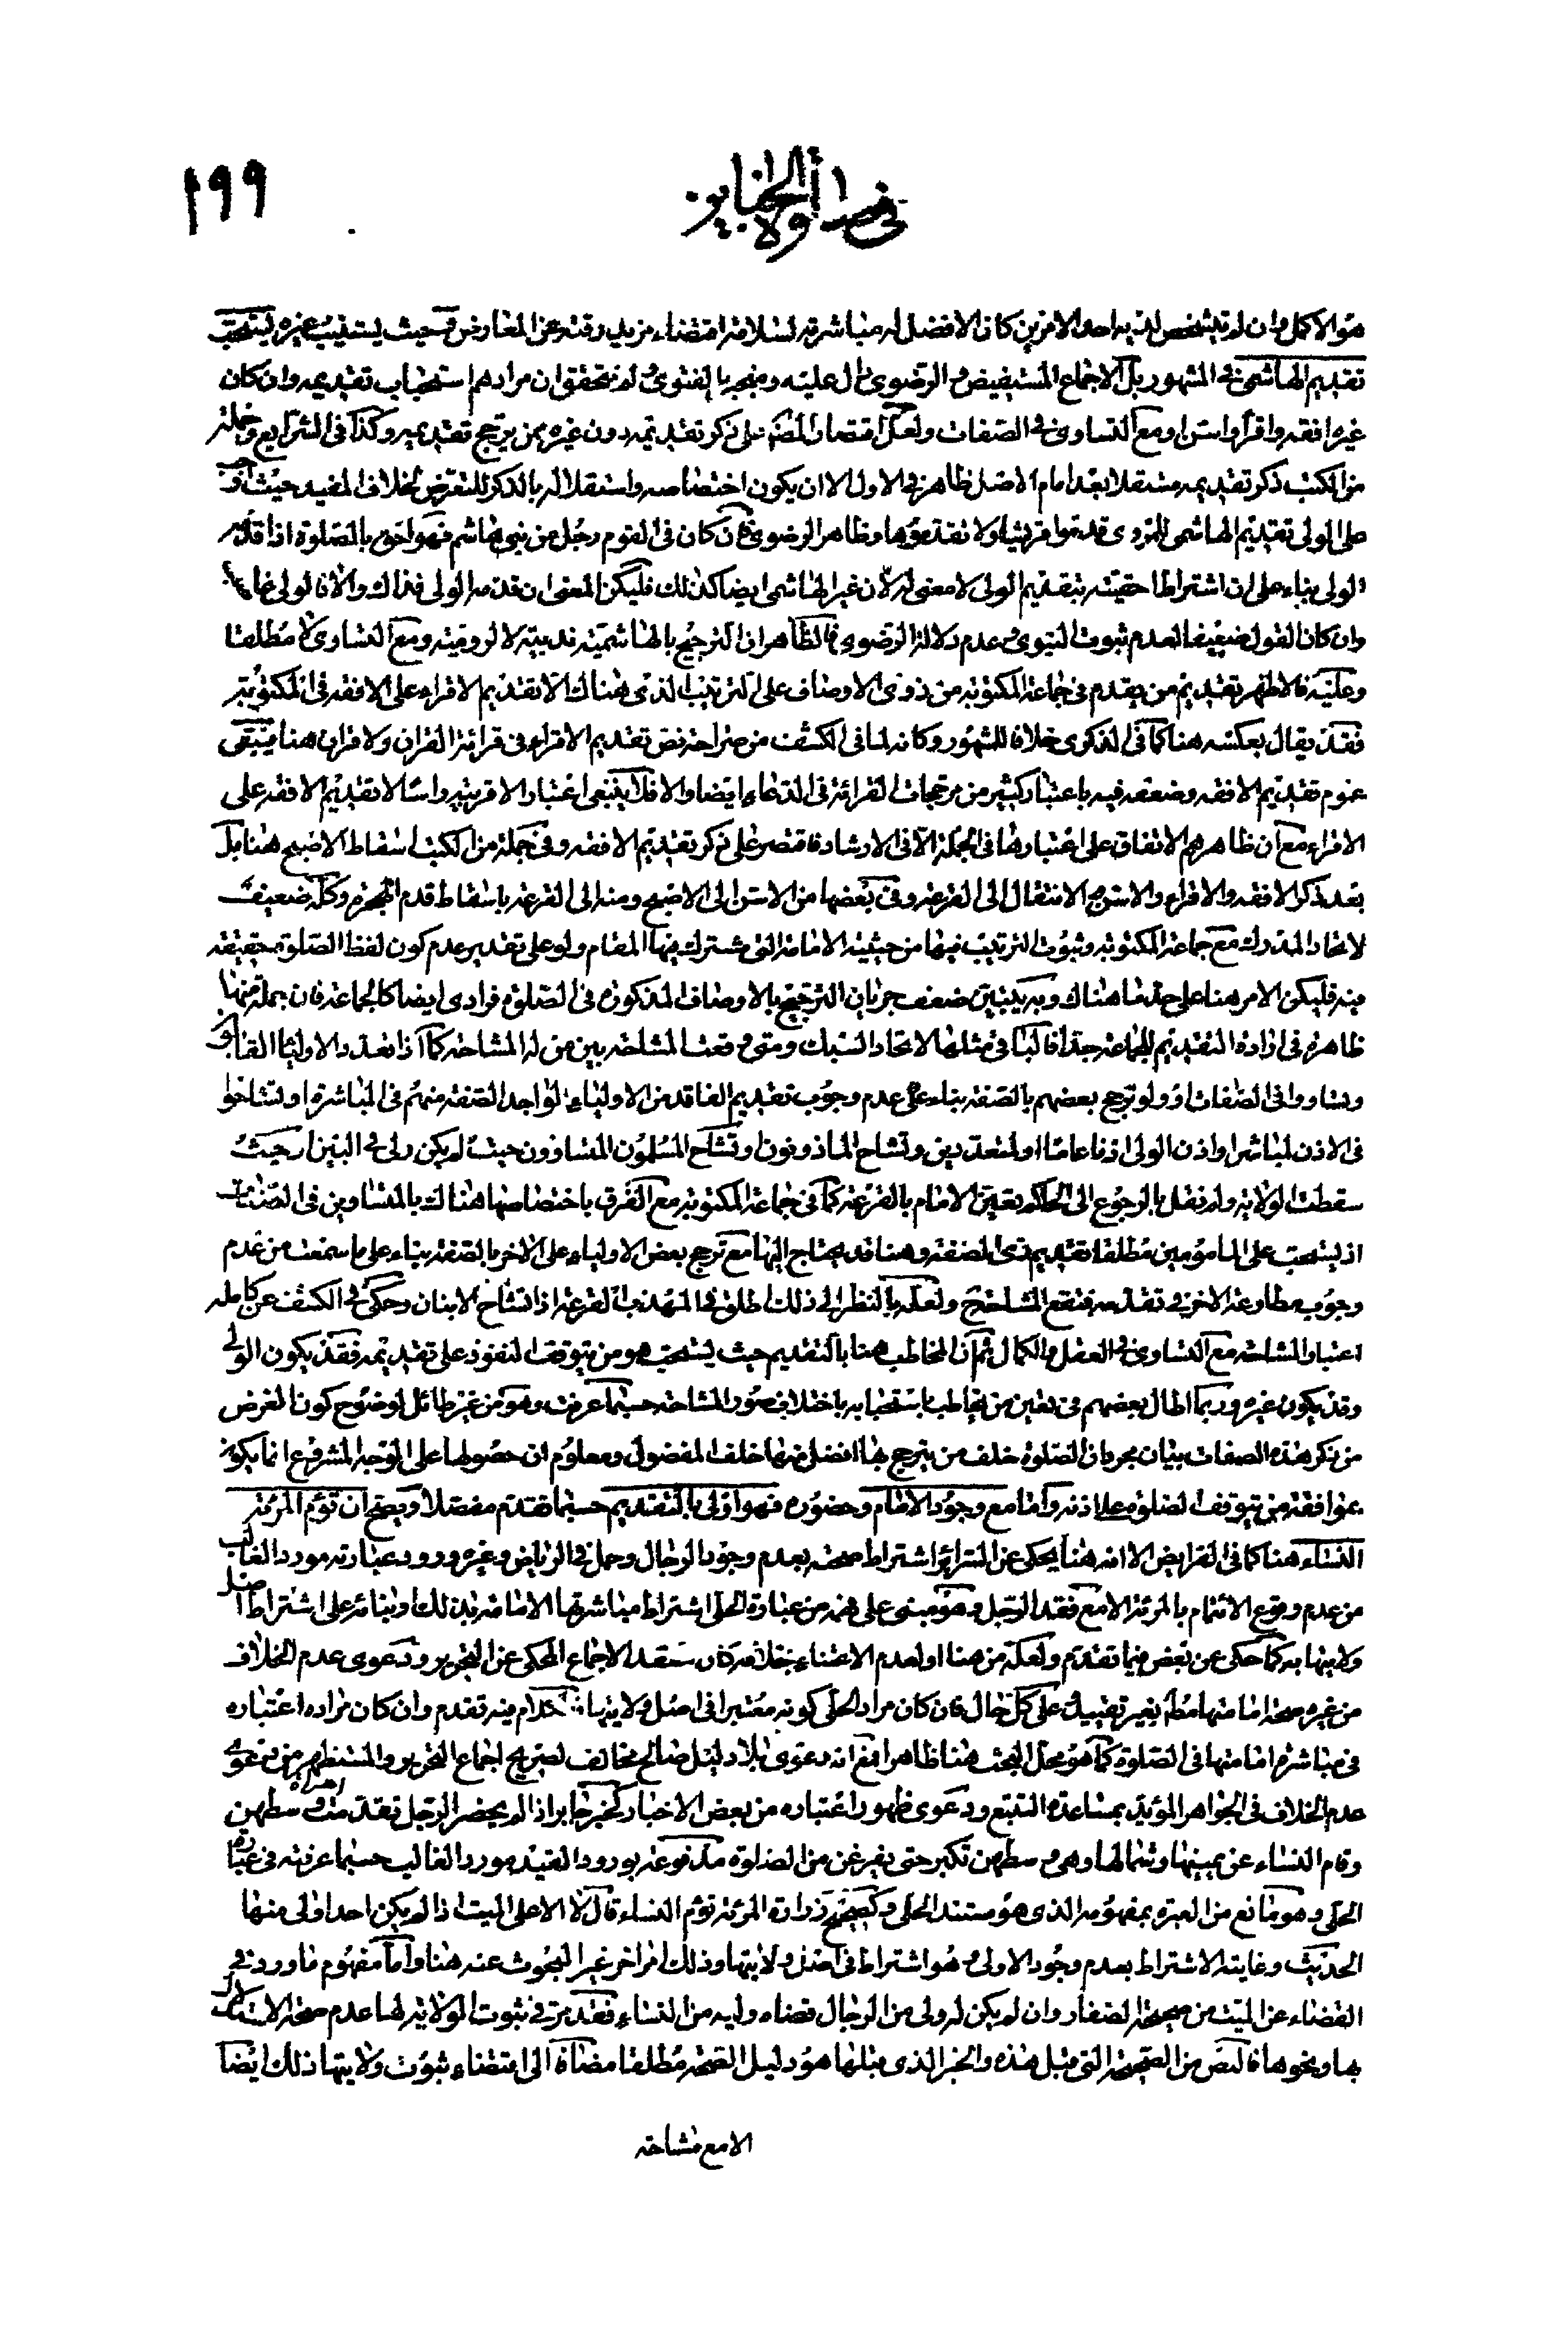 ١٩٩
هو الاكمل وان لم يتشخص لديه احد الامرين كان الافضل له مباشرته لسلامة اقتضاء مزيد رقته عن المعارض وحيث يستنيب غيره يستحب
تقديم الهاشمي في المشهور بل الاجماع المستفيض والرضوي دال عليه ومنجبر بالفتوى لو تحقق ان مرادهم استحباب تقديمه وان كان
غيره افقه واقرأ واسن او مع التساوي في الصفات ولعل اقتصار المصنف على ذكر تقديمه دون غيره ممن يرجح تقديمه وكذا في الشرايع وجملة
من الكتب ذكر تقديمه مستقلا بعد امام الاصل ظاهر في الاول الا ان يكون اختصاصه واستقلاله بالذكر للتعرض لخلاف المفيد حيث اوجب
على الولي تقديم الهاشمي للمروي قدموا قريشا ولا تقدموها وظاهر الرضوي فان كان في القوم رجل من بني هاشم فهو احق بالصلوة اذا قدمه
الولي بناء على ان اشتراط احقيته بتقديم الولي لا معنى له لان غير الهاشمي ايضا كذلك فليكن المعنى ان قدمه الولي فذاك والا فالولي
وان كان القول ضعيفا لعدم ثبوت النبوي وعدم دلالة الرضوي فالظاهر ان الترجيح بالهاشمية ندبية لا لزومية ومع التساوي لا مطلقا
وعليه فالاظهر تقديم من يقدم في جماعة المكتوبة من ذوي الاوصاف على الترتيب الذي هناك الا تقديم الاقراء على الافقه في المكتوبة
فقد يقال بعكسه هنا كما في الذكرى خلافا للمشهور وكانه لما في الكشف من صراحة نص تقديم الاقراء في قرائة القران ولا قران هنا فيبقى
عموم تقديم الافقه وضعفه فيه باعتبار كثير من مرجحات القرائة في الدعاء ايضا والا فلا ينبغي اعتبار الاقرئية راسا لا تقديم الافقه على
الاقراء مع ان ظاهرهم الاتفاق على اعتبارها في الجملة الا في الارشاد فاقتصر على ذكر تقديم الافقه وفي جملة من الكتب اسقاط الاصبح هنا بل
بعد ذكر الافقه والاقراء والاسن مع الانتقال الى القرعة وفي بعضها من الاسن الى الاصبح ومنه الى القرعة باسقاط قدم الهجرة وكله ضعيف
لاتحاد المدرك مع جماعة المكتوبة وثبوت الترتيب فيها من حيثية الامامة التي مشترك فيها المقام ولو على تقدير عدم كون لفظ الصلوة حقيقة
فيه فليكن الامر هنا على حد ما هناك وبه يتبين ضعف جريان الترجيح بالاوصاف المذكورة في الصلوة فرادى ايضا كالجماعة فان جملة منها
ظاهرة في ارادة التقديم للجماعة جدا فالباقي مثلها لاتحاد السبك ومتى وقعت المشاحة بين من له المشاحة كما اذا تعدد الاولياء
وتساووا في الصفات او ولو ترجح بعضهم بالصفة بناء على عدم وجوب تقديم الفاقد من الاولياء الواجد الصفة منهم في المباشرة او تشاحوا
في الاذن لمباشر او اذن الولي اذنا عاما او لمتعددين وتشاح الماذونون او تشاح المسلمون المتساوون حيث لم يكن ولي في البين او حيث
سقطت الولاية ولم نقل بالرجوع الى الحاكم تعين الامام بالقرعة كما في جماعة المكتوبة مع الفرق باختصاصها هناك بالمتساوين في الصفات
اذ يستحب على المامومين مطلقا تقديم ذي الصفة وهنا قد يحتاج اليها مع ترجح بعض الاولياء على الاخر بالصفة بناء على ما سمعت من عدم
وجوب مطاوعة الاخر في تقدمه فتقع المشاحة ح ولعله بالنظر الى ذلك اطلق في المهذب القرعة اذا تشاح الابنان وحكي في الكشف عن كامله
اعتبار المشاحة مع التساوي في العقل والكمال ثم ان المخاطب هنا بالتقديم حيث يستحب هو من يتوقف النفوذ على تقديمه فقد يكون الولي
وقد يكون غيره وربما اطال بعضهم في تعيين من يخاطب باستحبابه باختلاف صور المشاحة حسبما عرفت وهو من غير طائل لوضوح كون الغرض
من ذكر هذه الصفات بيان مجرد ان الصلوة خلف من يترجح بها افضل منها خلف المفضول ومعلوم ان حصولها على الوجه المشروع انما يكون
بموافقة من يتوقف الصلوة على اذنه واما مع وجود الامام وحضوره فهو اولى بالتقديم حسبما تقدم مفصلا ويصح ان تؤم المرئة
النساء هنا كما في الفرايض الا انه هنا يحكى عن السرائر اشتراط صحته بعدم وجود الرجال وحمل في الرياض وغيره ورود عبارته مورد الغالب
من عدم وقوع الائتمام بالمرئة الا مع فقد الرجل وهو مبني على فهمه من عبارة الحلي اشتراط مباشرتها الامامة بذلك او بنائه على اشتراط اصل
ولايتها به كما حكى عن بعض فيما تقدم ولعله من هنا او لعدم الاعتناء بخلافه كان معقد الاجماع المحكي عن التحرير ودعوى عدم الخلاف
من غيره صحة امامتها مط بغير تقييد وعلى كل حال فان كان مراد الحلي كونه معتبرا في اصل ولايتها فالكلام فيه تقدم وان كان مراده اعتباره
في مباشرة امامتها في الصلوة كما هو محل البحث هنا ظاهرا فمع انه دعوى بلا دليل صالح مخالف لصريح اجماع التحرير والمستظهر من دعوى
عدم الخلاف في الجواهر المؤيد بمساعدة التتبع ودعوى ظهور اعتباره من بعض الاخبار كخبر جابر اذا لم يحضر الرجل تقدمت امراة وسطهن
وقام النساء عن يمينها وشمالها وهي وسطهن تكبر حتى يفرغن من الصلوة مدفوعة بورود القيد مورد الغالب حسبما عرفته في عبارة
الحلي وهو مانع من العبرة بمفهومه الذي هو مستند الحلي وكصحيح زرارة المرئة تؤم النساء قال لا الا على الميت اذا لم يكن احد اولى منها
الحديث وغايته الاشتراط بعدم وجود الاولى وهو اشتراط في اصل ولايتها وذلك امر اخر غير المبحوث عنه هنا واما مفهوم ما ورد في
القضاء عن الميت من صحيحة الصفار وان لم يكن له ولي من الرجال قضاه وليه من النساء فقد مر في ثبوت الولاية لها عدم صحة الاستدلال
بها ونحوها فالنص من الصحيحة التي قبل هذه والخبر الذي قبلها هو دليل الصحة مطلقا مضافا الى اقتضاء ثبوت ولايتها ذلك ايضا
الا مع مشاحة